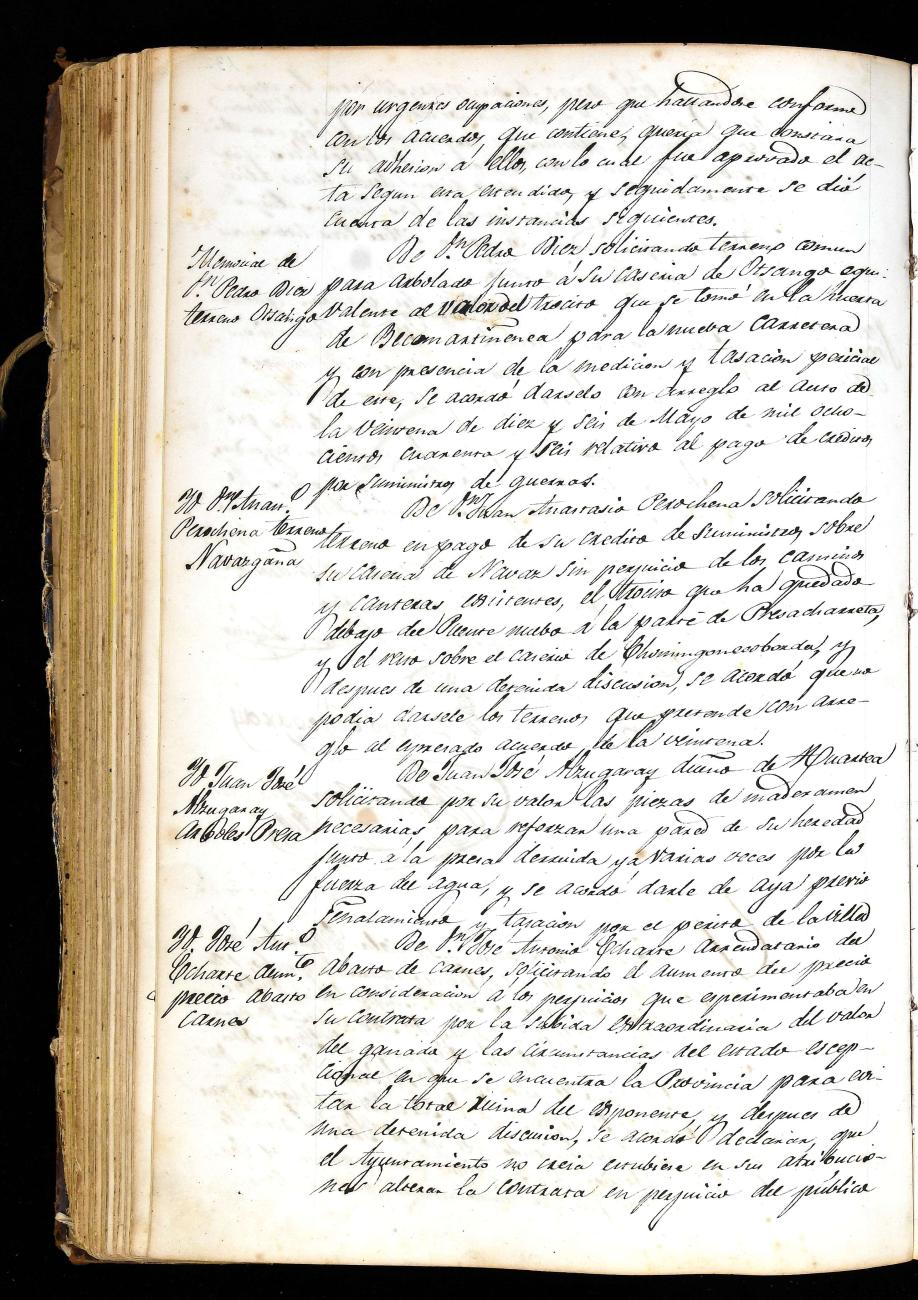 por urgentes ocupaciones, pero que hallandose conforme
con los acuerdos, que contiene, queria que constara
su adhesion á ellos, con lo cual fue aprovado el ac-
ta segun esta estendida, y seguidamente se dió
cuenta de las instancias siguientes.
Memorial de
Dn. Pedro Diez
terreno Otsango
De Dn. Pedro Diez solicitando terreno comun
para arbolado junto á su caseria de Otsango equi-
valente al valor del trocito que se tomó en la huerta
de Becomartinenea para la nueba carretera
y con presencia de la medicion y tasacion pericial
de este, se acordó darselo con arreglo al auto de
la Veintena de diez y seis de Mayo de mil ocho-
cientos cuarenta y seis relativo al pago de creditos
por suministros de guerras.
Yd. Dn. Juan
Perochena terreno
Navaz
De Dn. Juan Anastasio Perochena solicitando
terreno en pago de su credito de suministros sobre
su caseria de Navaz sin perjuicio de los caminos
y canteras ecsistentes, el trocito que ha quedado
debajo del Puente nuebo á la parte de Presacharreta,
y el resto sobre el caserio de y
despues de una detenida discusion, se acordó que no
podia darsele los terrenos que pretende con arre-
glo al espresado acuerdo de la veintena.
Yd. Juan José
Alzugaray
arboles Presa
De Juan José Alzugaray dueño de
solicitando por su valor las piezas de maderamen
necesarias para reforzar una pared de su heredad
junto á la presa destruida ya varias veces por la
fuerza del agua, y se acordó darle de aya previo
señalamiento y tasacion por el perito de la villa
Yd. José Anto.
Echarte aumto.
precio abasto
carnes
De Dn. José Antonio Echarte arrendatario del
abasto de carnes, solicitando el aumento del precio
en consideracion á los perjuicios que esperimentaba en
su contrata por la subida extraordinaria del valor
del ganado y las circunstancias del estado escep-
cional en que se encuentra la Provincia para evi-
tar la total ruina del esponente, y despues de
una detenida discusion, se acordó declarar, que
el Ayuntamiento no creia estubiese en sus atribucio-
nes alterar la contrata en perjuicio del público